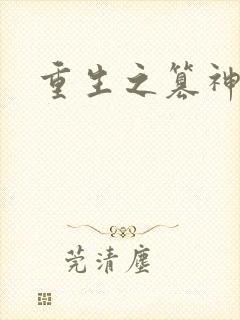 重生之篡神
莞清尘